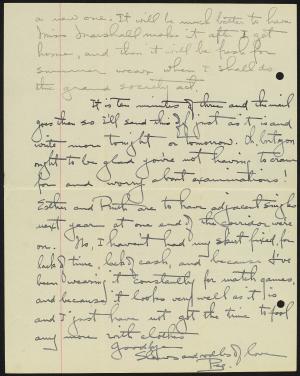 a new one. It will be much better to have
Miss Marshall make it after I get
home, and then it will be fresh for
summer wear when I shall do
the grand society act.
It is ten minutes of three and the mail
goes then so I'll send this off just as it is and
write more tonight or tomorrow. You
ought to be glad you're not having to cram
for and worry about examinations!
Esther and Ruth are to have adjacent singles
next year at one end of the corridor we're
on. No, I haven't had my skirt fixed, for
lack of time, lack of cash, and because I've
been wearing it constantly for match games,
and because it looks very well as it is
and I just have not got the time to fool
any more with clothes
Goodbye
and oodles of love
Peg.